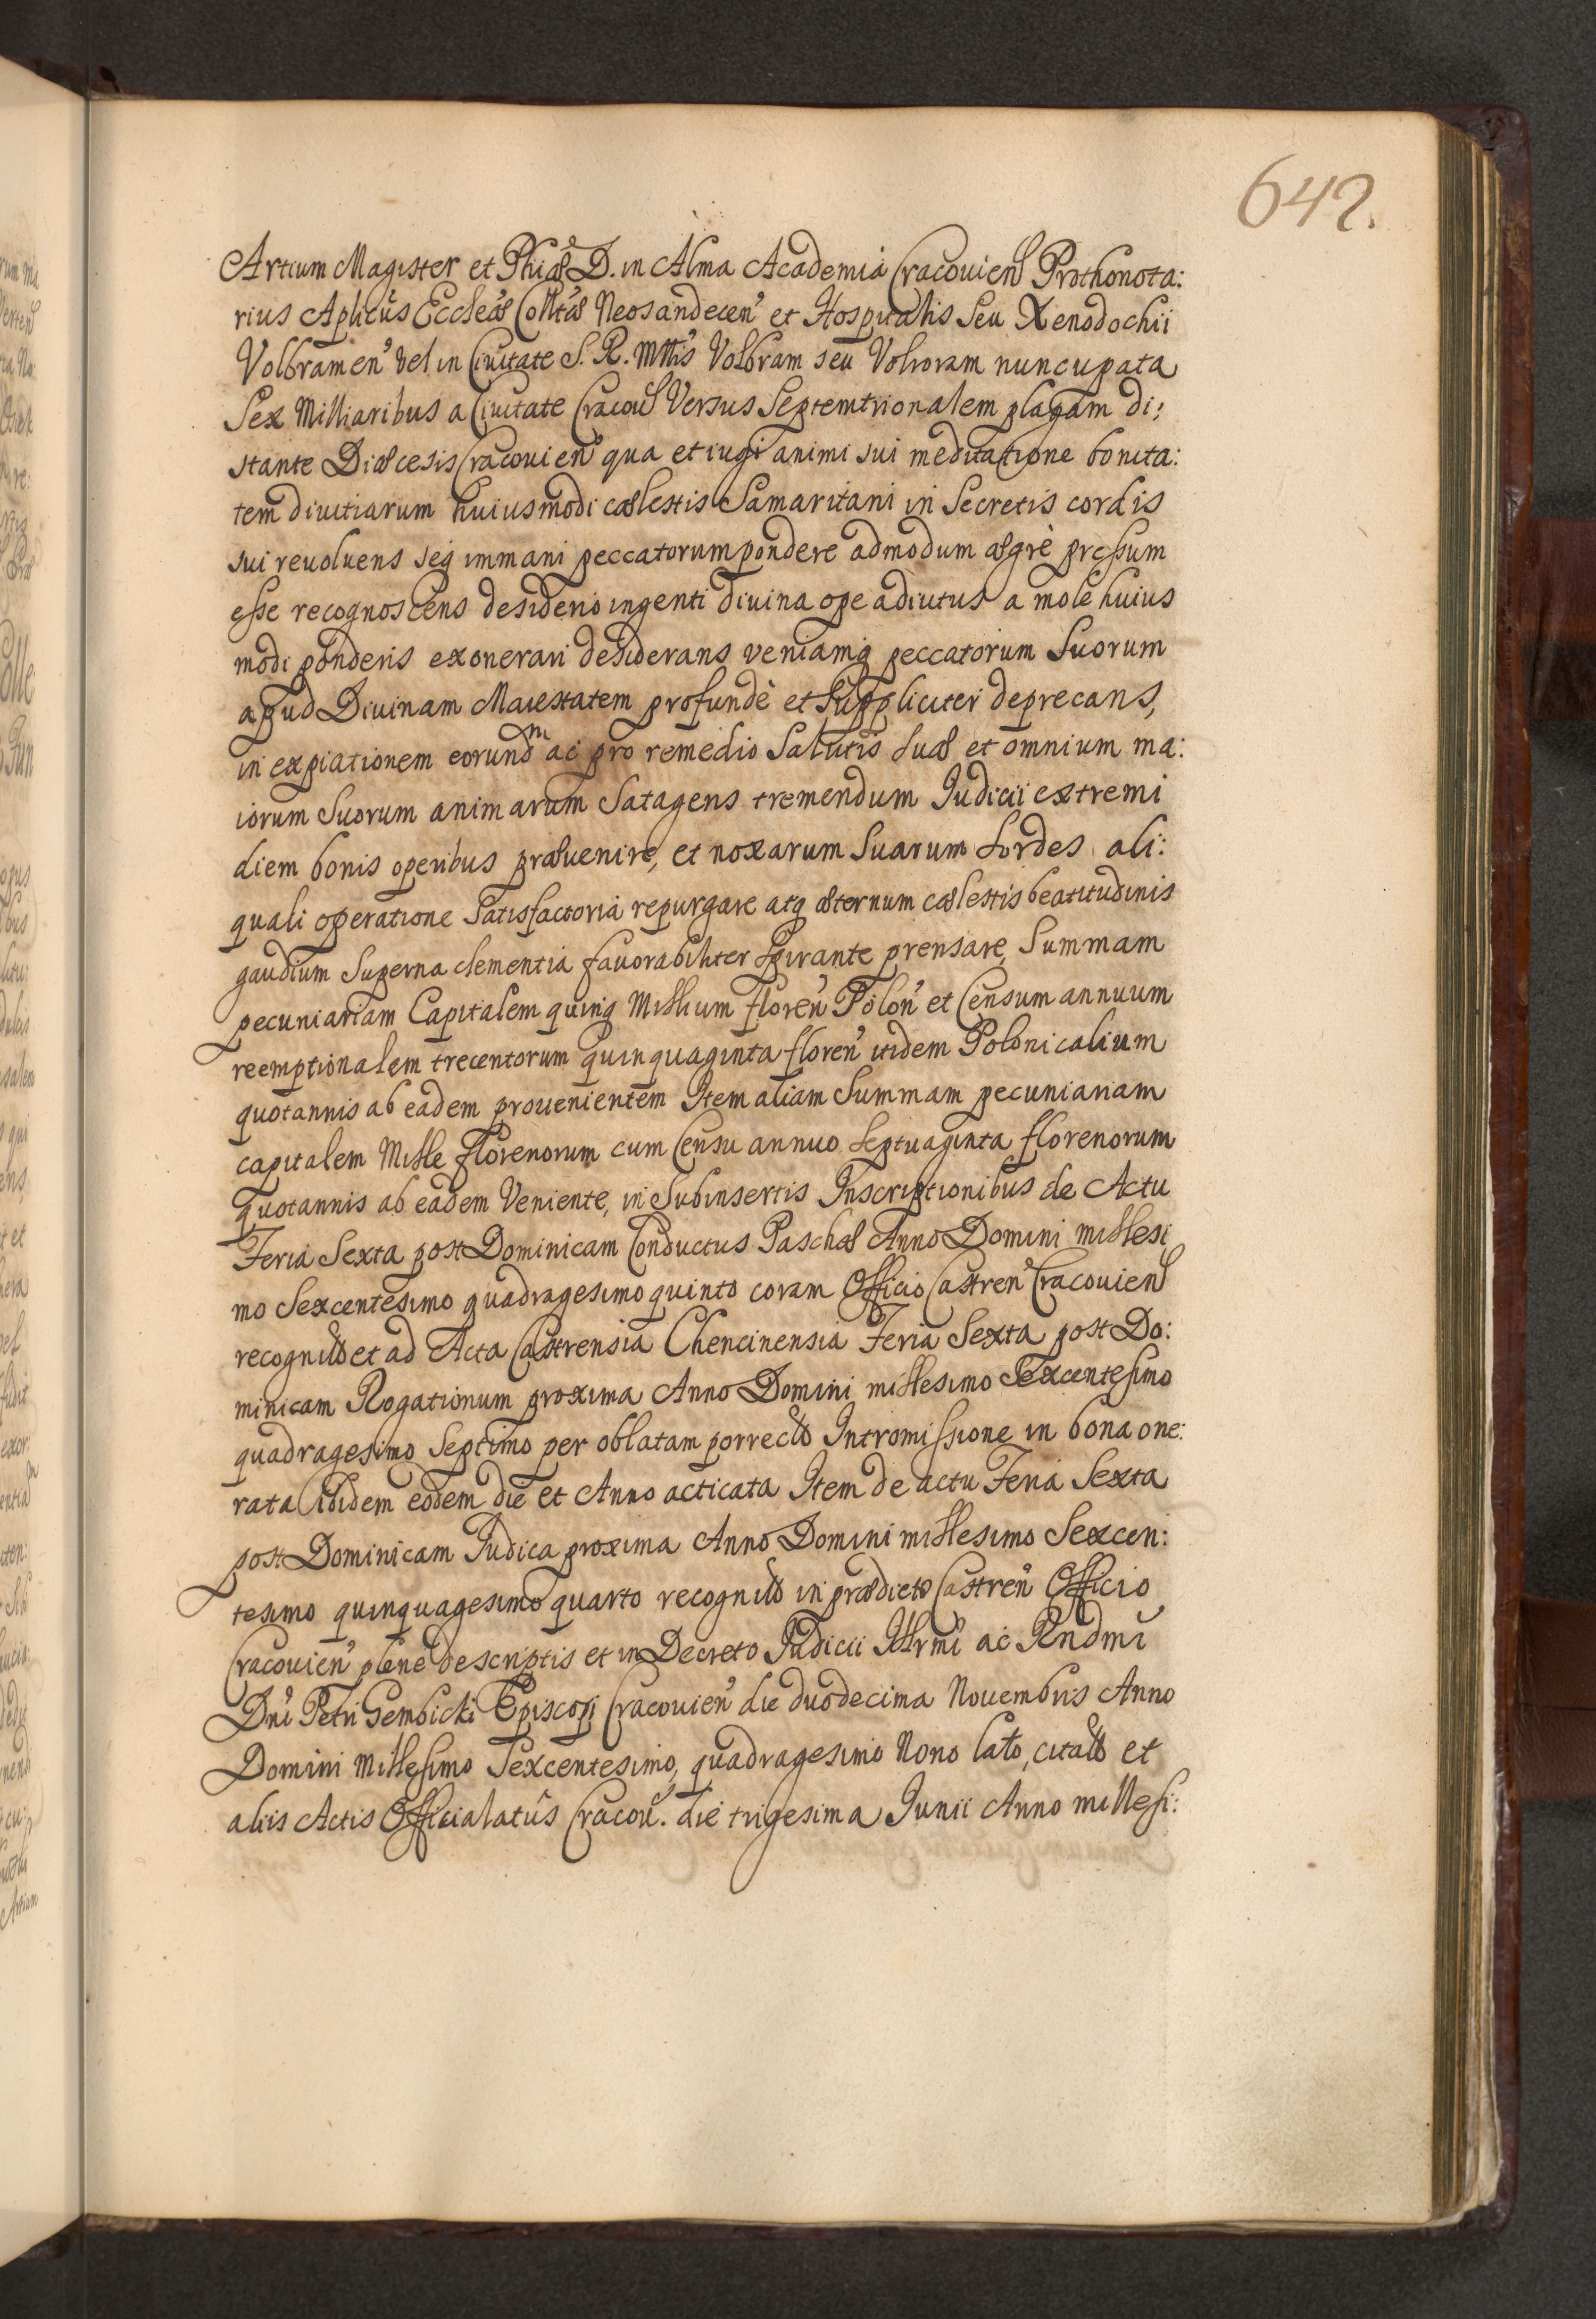 642.
Artium Magister et Phiæ D. in Alma Academia Cracouiens Prothonota:
rius Aplicûs Eccleæ Colltæ Neosandecen̾ et Hospitalis Seu Xenodochii
Volbramen̾ vel in Ciuitate S. R. Mttis Volbram seu Volworam nuncupata
Sex Milliaribus a Ciuitate Cracou Versus Septemtrionalem plagam di:
stante Diæcesis Cracouien̾ qua et iugi animi sui meditatione bonita:
tem diuitiarum huiusmodi cælestis Samaritani in Secretis cordis
sui reuoluens seq immani peccatorum pondere admodum ægrè pressum
esse recognoscens desiderio ingenti diuina ope adiutus a mole huius
modi ponderis exonerari desiderans veniamq peccatorum Suorum
apud Diuinam Maiestatem profundè et Suppliciter deprecans,
in expiationem eorundm ac pro remedio Salutis Suæ et omnium ma:
iorum Suorum animarum Satagens tremendum Iudicii extremi
diem bonis operibus præuenire, et noxarum Suarum Sordes ali:
quali operatione Satisfactoria repurgare atq æternum cælestis beatitudinis
gaudium Superna clementia fauorabiliter Spirante prensare, Summam
pecuniariam Capitalem quinq Millium floren̾ Polon̾ et Censum annuum
reemptionalem trecentorum quinquaginta floren̾ itidem Polonicalium
quotannis ab eadem prouenientem Item aliam Summam pecuniariam
capitalem Mille florenorum cum Censu annuo Septuaginta florenorum
quotannis ab eadem Veniente, in Subinsertis Inscriptionibus de Actu
Feria Sexta post Dominicam Conductus Paschæ Anno Domini millesi
mo Sexcentesimo quadragesimo quinto coram Officio Castren̾ Cracouiens
recognitis et ad Acta Castrensia Chencinensia Feria Sexta post Do:
minicam Rogationum proxima Anno Domini millesimo Sexcentesimo
quadragesimo Septimo per oblatam porrectis Intromissione in bona one:
rata ibidem eodem die et Anno acticata Item de actu Feria Sexta
post Dominicam Iudica proxima Anno Domini millesimo Sexcen:
tesimo quinquagesimo quarto recognitis in prædicto Castren̾ Officio
Cracouien̾ plene descriptis et in Decreto Iudicii Illrmi ac Rndmi
Dni Petri Gembicki Episcopi Cracouien̾ die duodecima Nouembris Anno
Domini Millesimo Sexcentesimo, quadragesimo Nono lato, citatis et
aliis Actis Officialatûs Cracou̾. die trigesima Iunii Anno millesi: